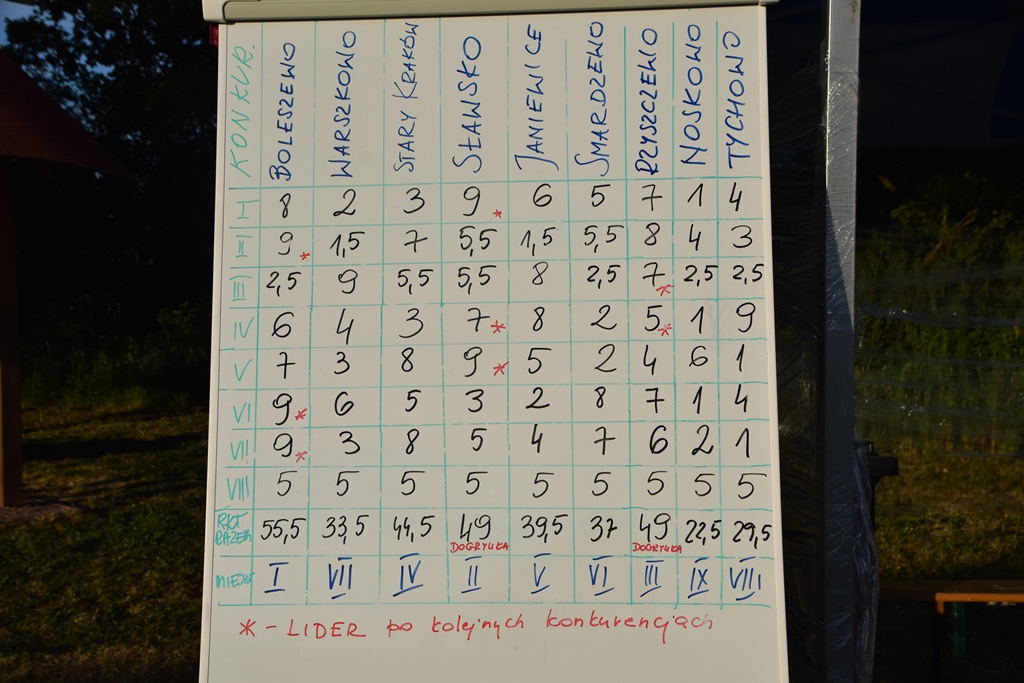 KONKUR. BOLESZEWO WARSZKOWO STARY KRAKÓW SŁAWSKO JANIEWICE SMARDZEWO RZYSZCZEWO NOSKOWO TYCHOWO
I 8 2 3 9 * 6 5 7 1 4
II 9 * 1,5 7 5,5 1,5 5,5 8 4 3
III 2,5 9 5,5 5,5 8 2,5 7 * 2,5 2,5
IV 6 4 3 7 * 8 2 5 * 1 9
V 7 3 8 9 * 5 2 4 6 1
VI 9 * 6 5 3 2 8 7 1 4
VII 9 * 3 8 5 4 7 6 2 1
VIII 5 5 5 5 5 5 5 5 5
PKT RAZEM 55,5 33,5 44,5 49 DOGRYWKA 39,5 37 49 DOGRYWKA 22,5 29,5
I VII IV II V VI III IX VIII
* - LIDER po kolejnych konkurencjach